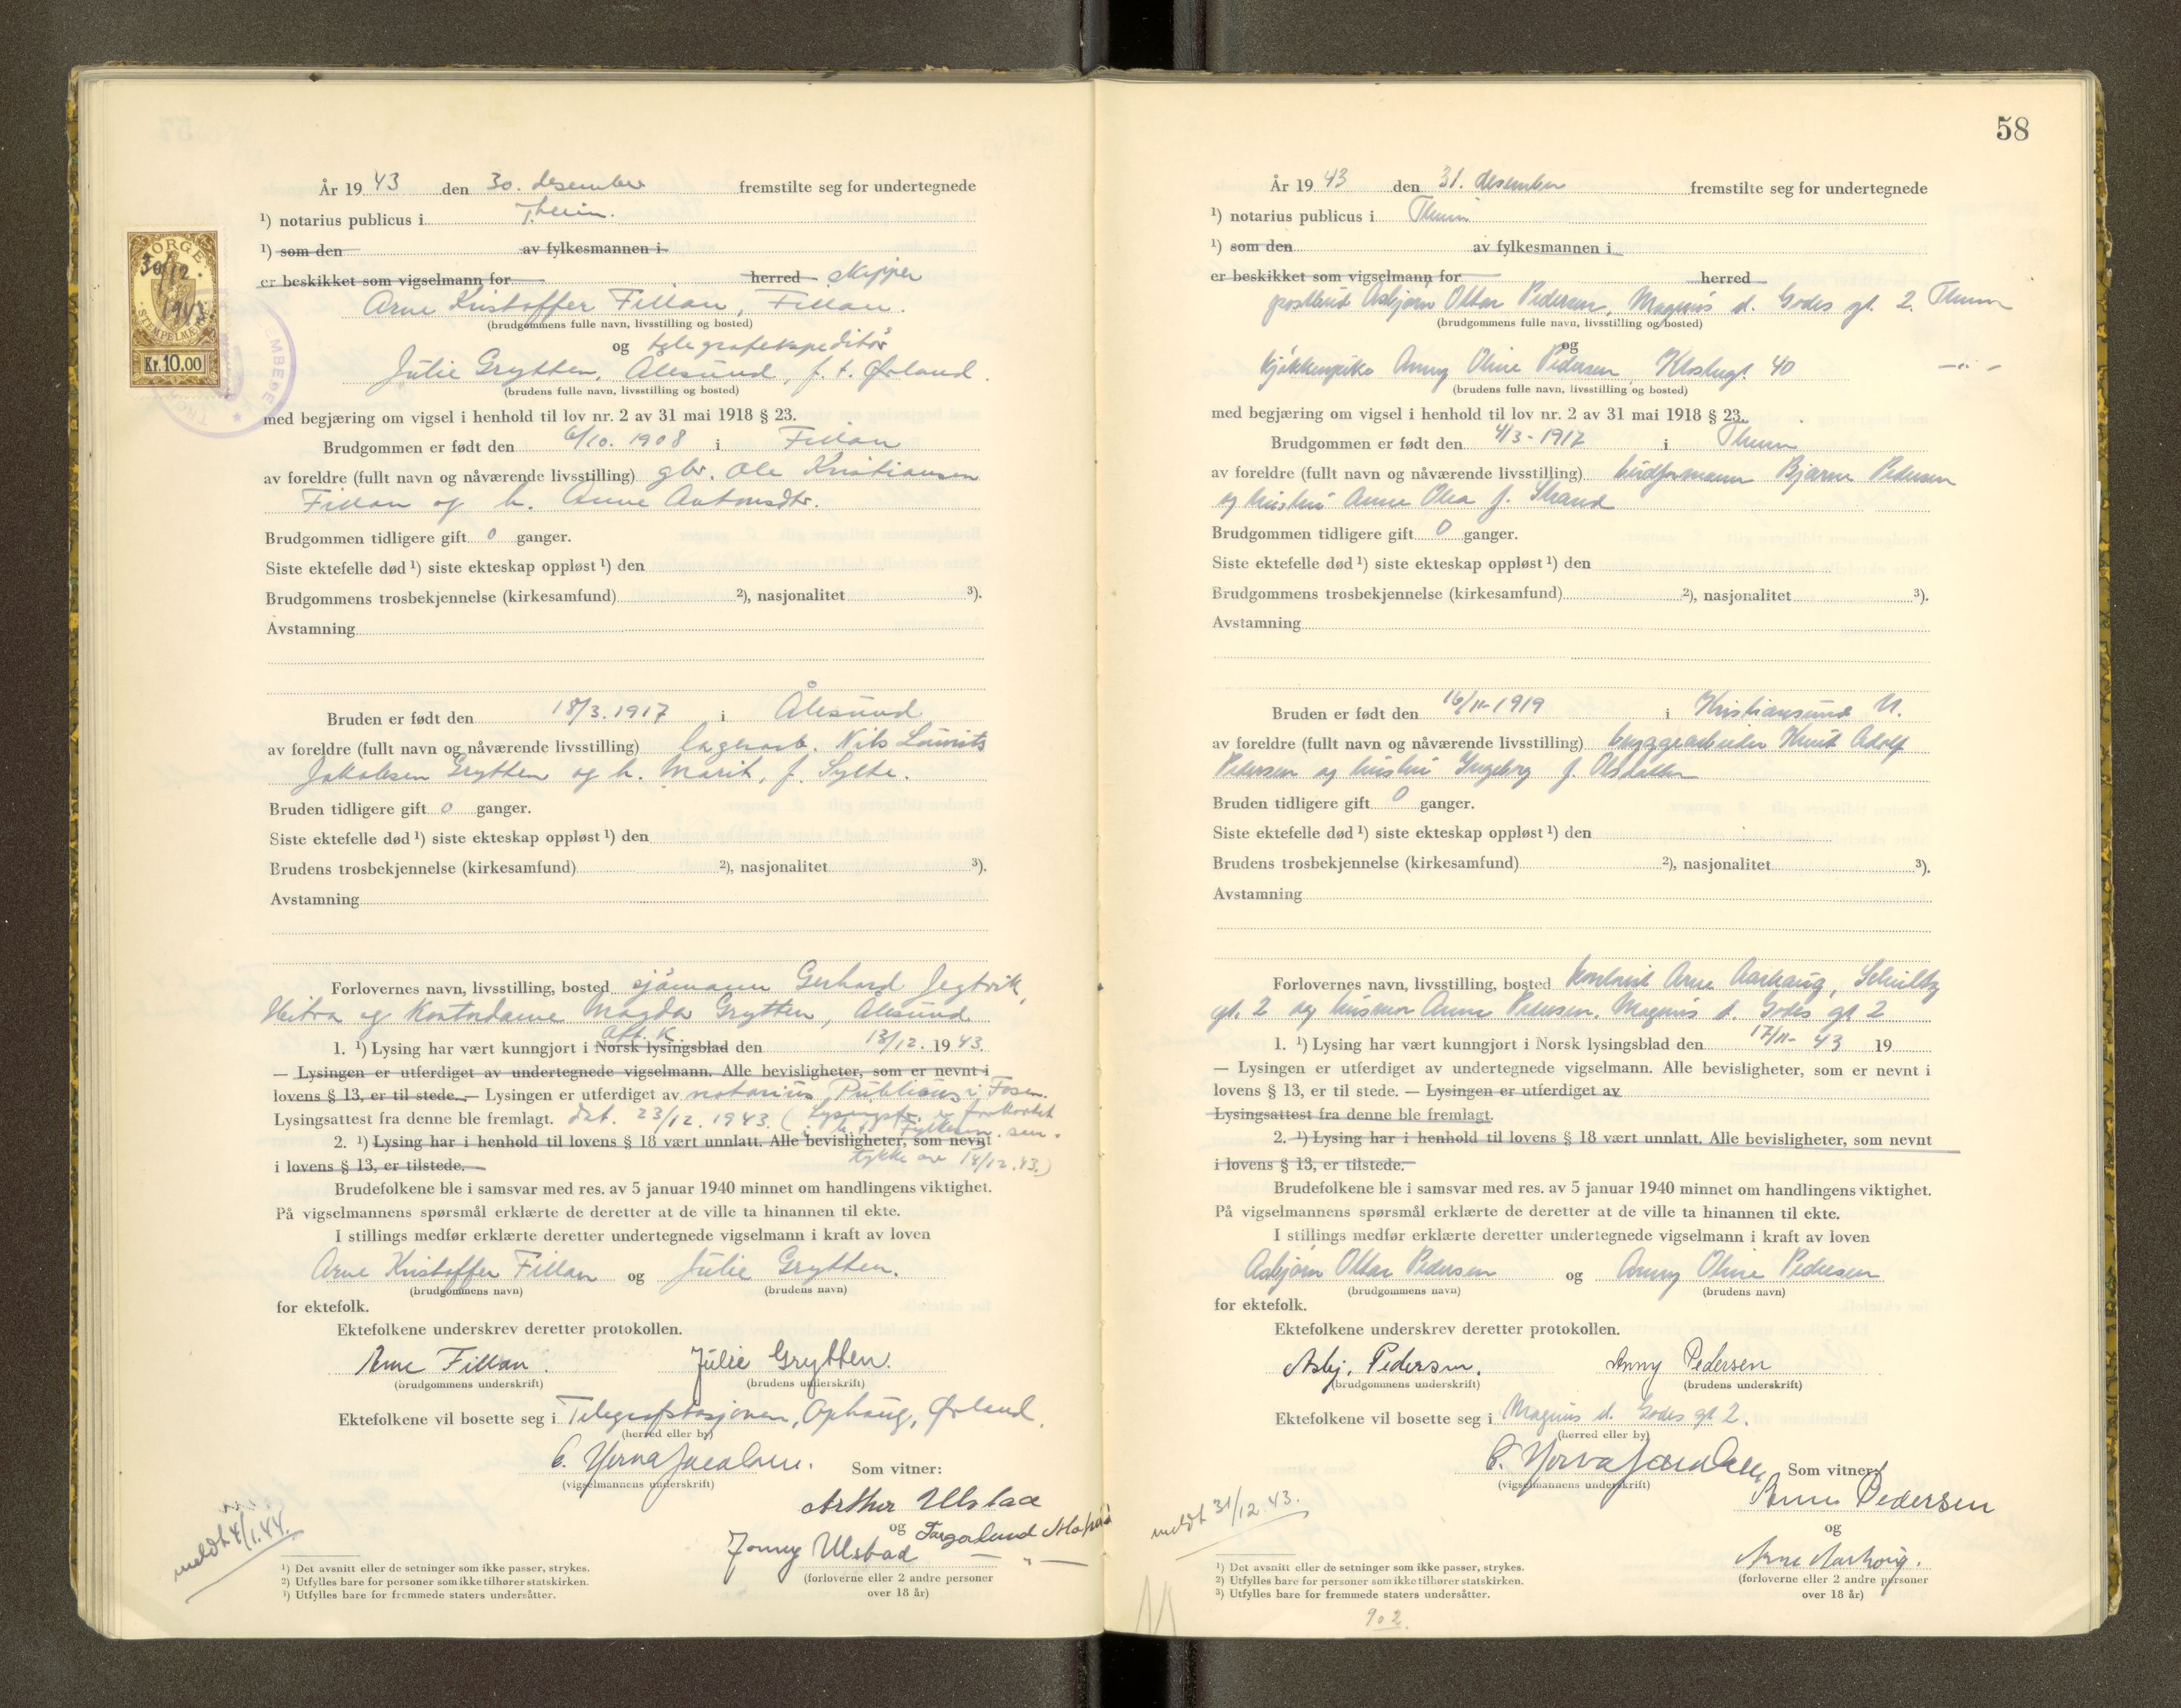 År 1943 den 30. desember fremstilte seg for undertegnede
¹) notarius publicus i T.heim.
¹) som den av fylkesmannen i
er beskikket som vigselmann for herred skipper
Arne Kristoffer Fillan, Fillan.
(brudgommens fulle navn, livsstilling og bosted)
og telegrafekspeditør
Julie Grytten, Ålesund, f. t. Ørland.
(brudens fulle navn, livsstilling og bosted)
med begjæring om vigsel i henhold til lov nr. 2 av 31 mai 1918 § 23.
Brudgommen er født den 6/10. 1908 i Fillan
av foreldre (fullt navn og nåværende livsstilling) gbr. Ole Kristiansen
Fillan og h. Anne Antonsdtr.
Brudgommen tidligere gift 0 ganger.
Siste ektefelle død ¹) siste ekteskap oppløst ¹) den
Brudgommens trosbekjennelse (kirkesamfund) ²), nasjonalitet ³).
Avstamning
Bruden er født den 18/3. 1917 i Ålesund
av foreldre (fullt navn og nåværende livsstilling) lagerarb. Nils Lauritz
Jakobsen Grytten og h. Marit, f. Sylte.
Bruden tidligere gift 0 ganger.
Siste ektefelle død ¹) siste ekteskap oppløst ¹) den
Brudens trosbekjennelse (kirkesamfund) ²), nasjonalitet ³).
Avstamning
Forlovernes navn, livsstilling, bosted sjömann Gerhard Jegtvik,
Hitra og Kontordame Magda Grytten, Ålesund
Oppl. K.
1. ¹) Lysing har vært kunngjort i Norsk lysingsblad den 13/12. 1943.
— Lysingen er utferdiget av undertegnede vigselmann. Alle bevisligheter, som er nevnt i
lovens § 13, er til stede. — Lysingen er utferdiget av notarius Publicus i Fosen.
Lysingsattest fra denne ble fremlagt. dat. 23/12. 1943. (Lysingsfr. er forkortet
i h. t. Fylkesm. sam-
2. ¹) Lysing har i henhold til lovens § 18 vært unnlatt. Alle bevisligheter, som nevnt
i lovens § 13, er tilstede. tykke av 14/12.43.)
Brudefolkene ble i samsvar med res. av 5 januar 1940 minnet om handlingens viktighet.
På vigselmannens spørsmål erklærte de deretter at de ville ta hinannen til ekte.
I stillings medfør erklærte deretter undertegnede vigselmann i kraft av loven
Arne Kristoffer Fillan og Julie Grytten.
(brudgommens navn) (brudens navn)
for ektefolk.
Ektefolkene underskrev deretter protokollen.
Arne Fillan. Julie Grytten.
(brudgommens underskrift) (brudens underskrift)
Ektefolkene vil bosette seg i Telegrafstasjonen, Ophaug, Ørland.
(herred eller by)
(vigselmannens underskrift) Som vitner:
Arthur Ulstad
og
Jonny Ulstad
(forloverne eller 2 andre personer
over 18 år)
meldt 4/1.44.
¹) Det avsnitt eller de setninger som ikke passer, strykes.
²) Utfylles bare for personer som ikke tilhører statskirken.
¹) Utfylles bare for fremmede staters undersåtter.
NORGE
30/12.
1943
STEMPELMERKE
Kr. 10.00
58
År 1943 den 31. desember fremstilte seg for undertegnede
¹) notarius publicus i Theim
¹) som den av fylkesmannen i
er beskikket som vigselmann for herred
postbud Asbjørn Ottar Pedersen, Magnus d. Godes gt. 2. Theim
(brudgommens fulle navn, livsstilling og bosted)
og
kjøkkenpike Anny Oline Pedersen, Klostergt. 40 — " —
(brudens fulle navn, livsstilling og bosted)
med begjæring om vigsel i henhold til lov nr. 2 av 31 mai 1918 § 23.
Brudgommen er født den 4/3-1917 i Theim
av foreldre (fullt navn og nåværende livsstilling) budformann Bjarne Pedersen
og hustru Anne Olea f. Strand
Brudgommen tidligere gift 0 ganger.
Siste ektefelle død ¹) siste ekteskap oppløst ¹) den
Brudgommens trosbekjennelse (kirkesamfund) ²), nasjonalitet ³).
Avstamning
Bruden er født den 16/11-1919 i Kristiansund N.
av foreldre (fullt navn og nåværende livsstilling) bryggearbeider Knut Adolf
Pedersen og hustru Ingeborg f. Olsdatter
Bruden tidligere gift 0 ganger.
Siste ektefelle død ¹) siste ekteskap oppløst ¹) den
Brudens trosbekjennelse (kirkesamfund) ²), nasjonalitet ³).
Avstamning
Forlovernes navn, livsstilling, bosted kontorist Arne Aarhaug,
gt. 2 og husmor Anne Pedersen. Magnus d. Godes gt 2
1. ¹) Lysing har vært kunngjort i Norsk lysingsblad den 17/11- 43 19
— Lysingen er utferdiget av undertegnede vigselmann. Alle bevisligheter, som er nevnt i
lovens § 13, er til stede. — Lysingen er utferdiget av
Lysingsattest fra denne ble fremlagt.
2. ¹) Lysing har i henhold til lovens § 18 vært unnlatt. Alle bevisligheter, som nevnt
i lovens § 13, er tilstede.
Brudefolkene ble i samsvar med res. av 5 januar 1940 minnet om handlingens viktighet.
På vigselmannens spørsmål erklærte de deretter at de ville ta hinannen til ekte.
I stillings medfør erklærte deretter undertegnede vigselmann i kraft av loven
Asbjørn Ottar Pedersen og Anny Oline Pedersen
(brudgommens navn) (brudens navn)
for ektefolk.
Ektefolkene underskrev deretter protokollen.
Asbj. Pedersen. Anny Pedersen
(brudgommens underskrift) (brudens underskrift)
Ektefolkene vil bosette seg i Magnus d. Godes gt 2.
(herred eller by)
(vigselmannens underskrift) Som vitner:
Anne Pedersen
og
Arne Aarhaug.
(forloverne eller 2 andre personer
over 18 år)
meldt 31/12.43.
¹) Det avsnitt eller de setninger som ikke passer, strykes.
²) Utfylles bare for personer som ikke tilhører statskirken.
³) Utfylles bare for fremmede staters undersåtter.
902.